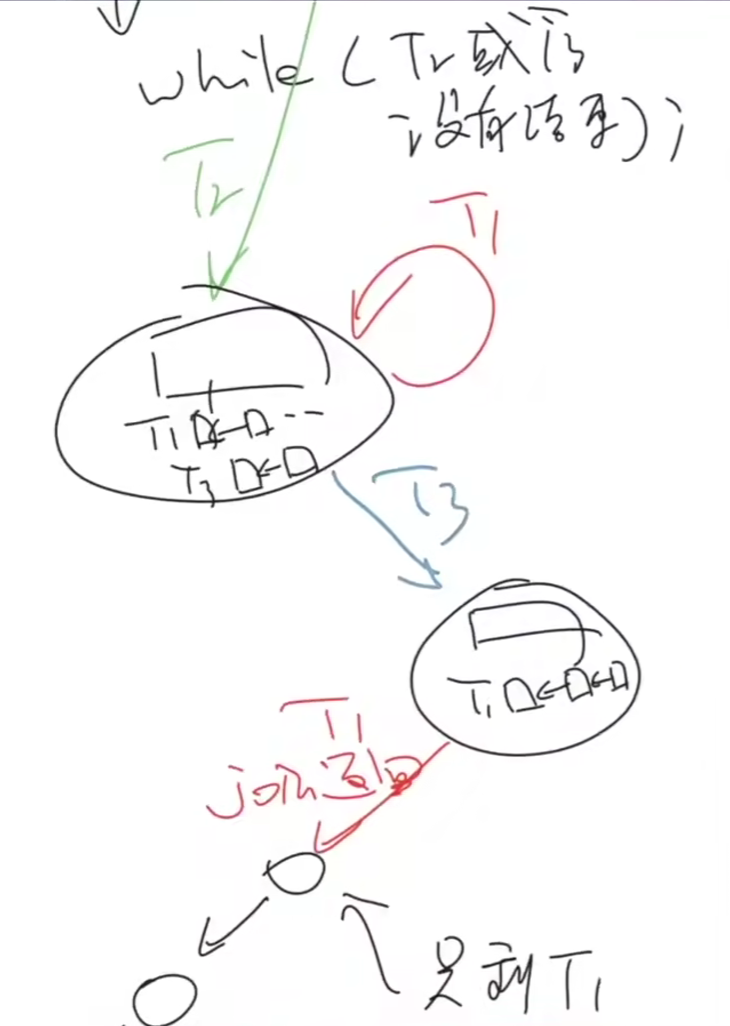 while (T2或T3
没有结束);
T2
T1
T1
T3
T3
T1
T1
join返回
只剩T1